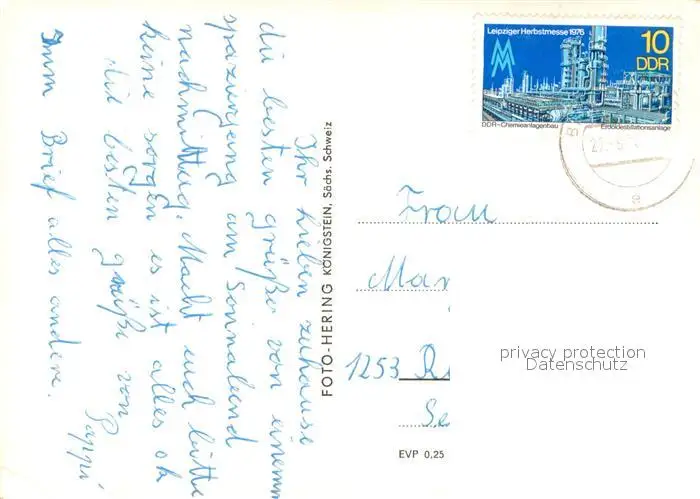 Ihr lieben zuhause
die besten grüße von einemm
spazirgeng am Sonnabend
nachmittag. Macht euch bitte
keine sorgen es ist alles ok
die besten grüße von
Pappi
Imm Brief alles andere.
FOTO-HERING KÖNIGSTEIN, Sächs. Schweiz
Leipziger Herbstmesse 1976
10
DDR
DDR-Chemieanlagenbau Erdöldestillationsanlage
Frau
Mar
1253
Se
EVP 0,25
privacy protection
Datenschutz